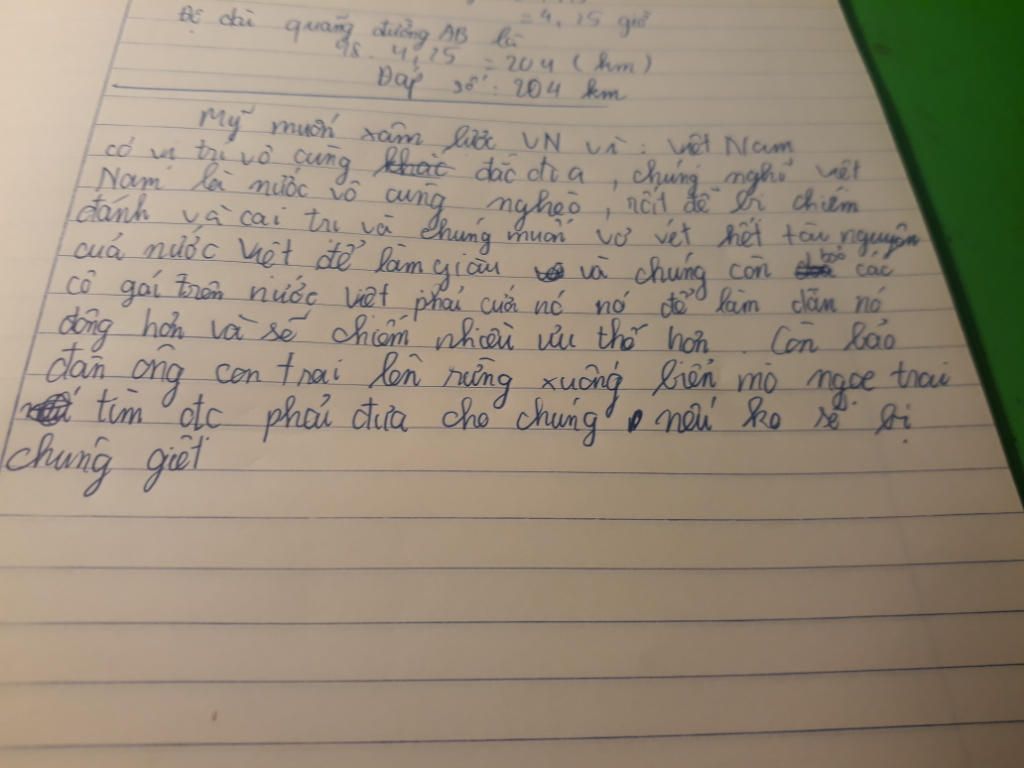 Độ dài quãng đường AB là
= 4,25 giờ
48 . 4,25 = 204 (km)
Đáp số : 204 km
Mỹ muốn xâm lược VN vì : Việt Nam
có vị trí vô cùng đắc địa , chúng nghĩ việt
Nam là nước vô cùng nghèo , rất dễ bị chiếm
đánh và cai trị và chúng muốn vơ vét hết tài nguyên
của nước Việt để làm giàu và chúng còn bảo các
cô gái trên nước Việt phải cưới nó nó để làm dân nó
đông hơn và sẽ chiếm nhiều ưu thế hơn . Còn bảo
đàn ông con trai lên rừng xuống biển mò ngọc trai
tìm đc phải đưa cho chúng , nếu ko sẽ bị
chúng giết